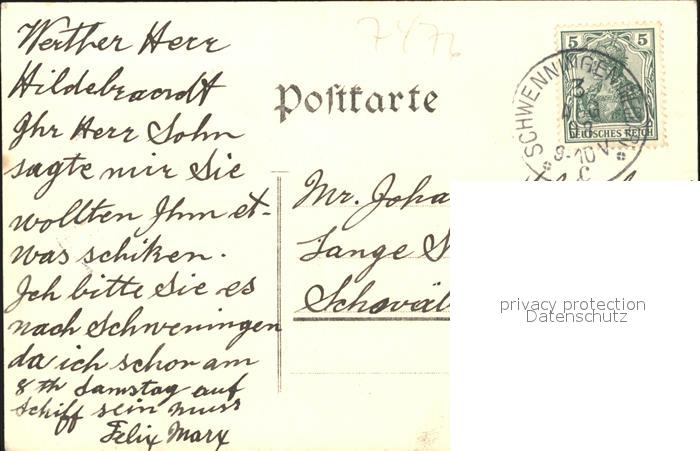 Werther Herr
Hildebrandt
Ihr Herr Sohn
sagte mir Sie
wollten Ihm et-
was schiken.
Ich bitte Sie es
nach Schweningen
da ich schon am
8th Samstag auf
Schiff sein muss
Felix Marx
7476
Postkarte
5 5
DEUTSCHES REICH
SCHWENNINGEN
3
AUG
9-10 V.
C
Mr. Joha
Lange S
Schwäb
privacy protection
Datenschutz